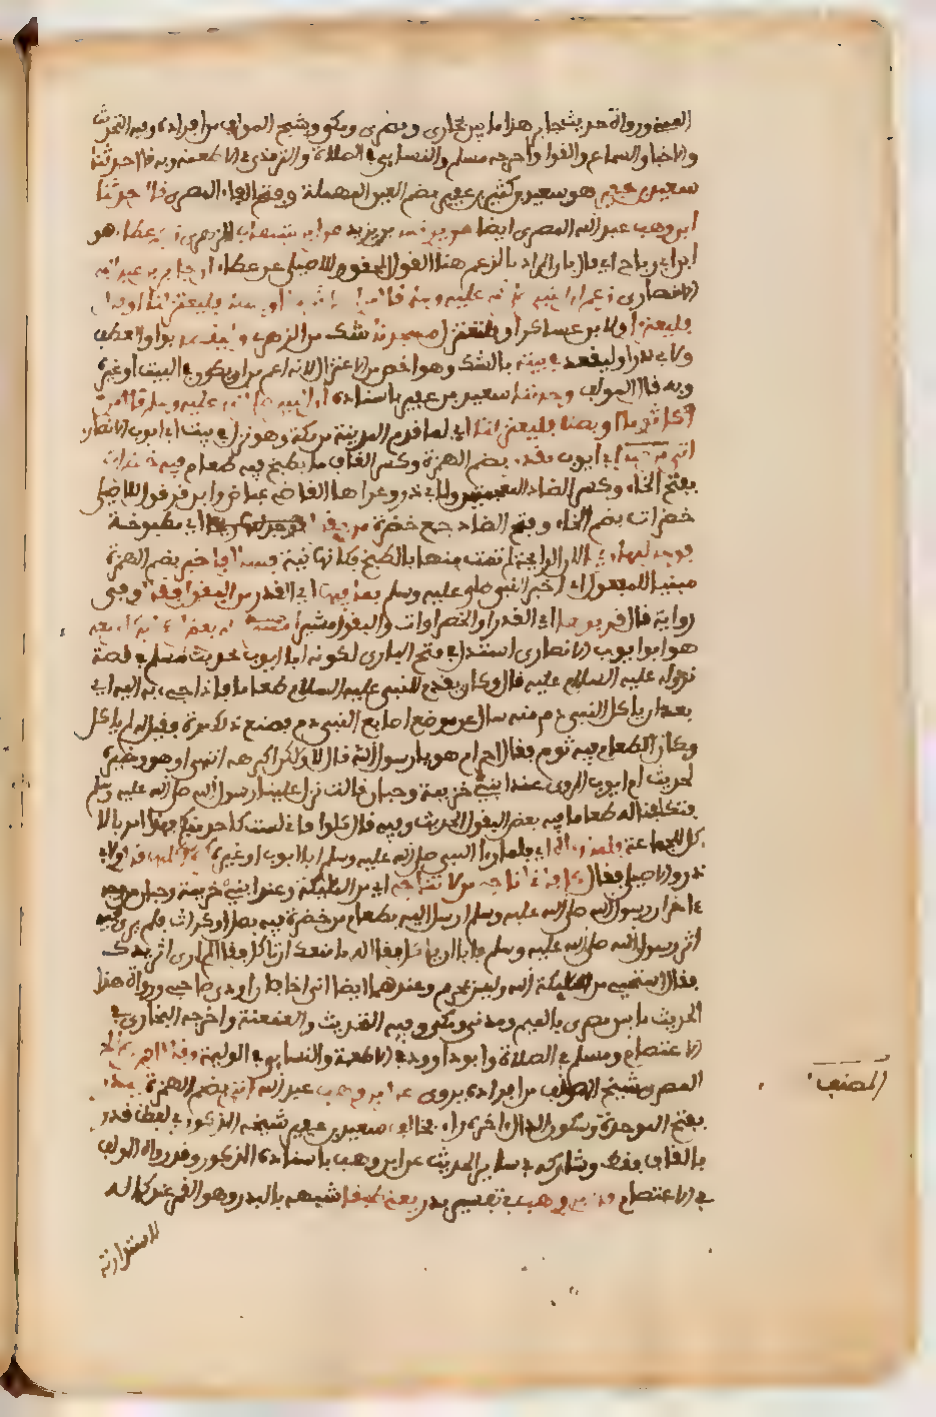 العينة ورواة حديث جابر هذا ما بين بخاري وبصري ومكي وشيخ المؤلف من افراده وفيه التحديث
والاخبار والسماع والقول واخرجه مسلم والنسايي في الصلاة والترمذي في الاطعمة وبه قال حدثنا
سعيد بن عفير هو سعيد بن كثير بن عفير بضم العين المهملة وفتح الفاء المصري قال حدثنا
ابن وهب عبد الله المصري ايضا عن يونس بن يزيد عن ابن شهاب الزهري زعم عطاء هو
ابن ابي رباح اي قال لان المراد بالزعم هنا القول المحقق وللاصيلي عن عطاء ان جابر بن عبد الله
الانصاري زعم ان النبي صلى الله عليه وسلم قال من اكل ثوما او بصلا فليعتزلنا او قال
فليعتزل ولابن عساكر او فليعتزل مسجدنا شك من الزهري وليقعد بواو العطف
ولابي ذر او ليقعد في بيته بالشك وهو اخص من الاعتزال لانه اعم من ان يكون في البيت او غيره
وبه قال المؤلف وحدثنا سعيد بن عفير باسناده ان النبي صلى الله عليه وسلم قال من
اكل ثوما او بصلا فليعتزلنا اي لما قدم المدينة من مكة وهو نزل في بيت ابي ايوب الانصاري
اتي من عند ابي ايوب بقدر بضم الهمزة وكسر القاف ما يطبخ فيه طعام فيه خضرات
بفتح الخاء وكسر الضاد المعجمتين ولابي ذر وعزاها القاضي عياض وابن قرقول للاصيلي
خضرات بضم الخاء وفتح الضاد جمع خضرة من بقول اي مطبوخة
فوجد لها ريحا لان الرايحة لم تمت منها بالطبخ فكانها نية فسال فاخبر بضم الهمزة
مبنيا للمفعول اي اخبر النبي صلى عليه وسلم بما فيها اي القدر من البقول فقال وفي
رواية قال قربوها اي القدر او الخضراوات والبقول مشيرا الى بعض اصحابه كان معه
هو ابو ايوب الانصاري استدل في فتح الباري لكونه ابا ايوب بحديث مسلم في قصة
نزوله عليه السلام عليه قال وكان يقدم للنبي عليه السلام طعاما فاذا جيء به اليه اي
بعد ان ياكل النبي صم منه سال عن موضع اصابع النبي صم فصنع ذلك مرة فقيل له لم ياكل
وكان الطعام فيه ثوم فقال احرام هو يا رسول الله قال لا ولكن اكرهه انتهى او هو وغيره
لحديث ام ايوب المروي عند ابني خزيمة وحبان قالت نزل علينا رسول الله صلى الله عليه وسلم
فتكلفنا له طعاما فيه بعض البقول الحديث وفيه قال كلوا فاني لست كاحد منكم فهذا امر بالا
كل للجماعة فلما رءاه اي فلما رءا النبي صلى الله عليه وسلم ابا ايوب او غيره كره اكلها قال ولابي
ذر والاصيلي فقال كل فاني اناجي من لا تناجي اي من الملئكة وعند ابني خزيمة وحبان من وجه
ءاخر ان رسول الله صلى الله عليه وسلم ارسل اليه بطعام من خضرة فيه بصل او كراث فلم ير فيه
اثر رسول الله صلى الله عليه وسلم فابا ان ياكل فقال له ما منعك ان تاكل فقال لم ار اثر يدك
فقال استحيي من ملئكة الله وليس بمحرم وعندهما ايضا اني اخاف ان اوذي صاحبي ورواة هذا
الحديث ما بين مصري بالميم ومدني ومكي وفيه التحديث والعنعنة واخرجه البخاري في
الاعتصام ومسلم في الصلاة وابو داوود في الاطعمة والنسايي في الوليمة وقال احمد بن صالح
المصري شيخ المؤلف من افراده يروي عن ابن وهب عبد الله اتي بضم الهمزة ببدر
بفتح الموحدة وسكون الدال اخره راء يخالف سعيد بن عفير شيخه المذكور في لفظ قدر
بالقاف فقط وشاركه في ساير الحديث عن ابن وهب باسناده المذكور وقد رواه المؤلف
في الاعتصام قال ابن وهب في تفسير بدر يعني طبقا شبهه بالبدر وهو القمر عند كماله
لاستدارته
المصنف